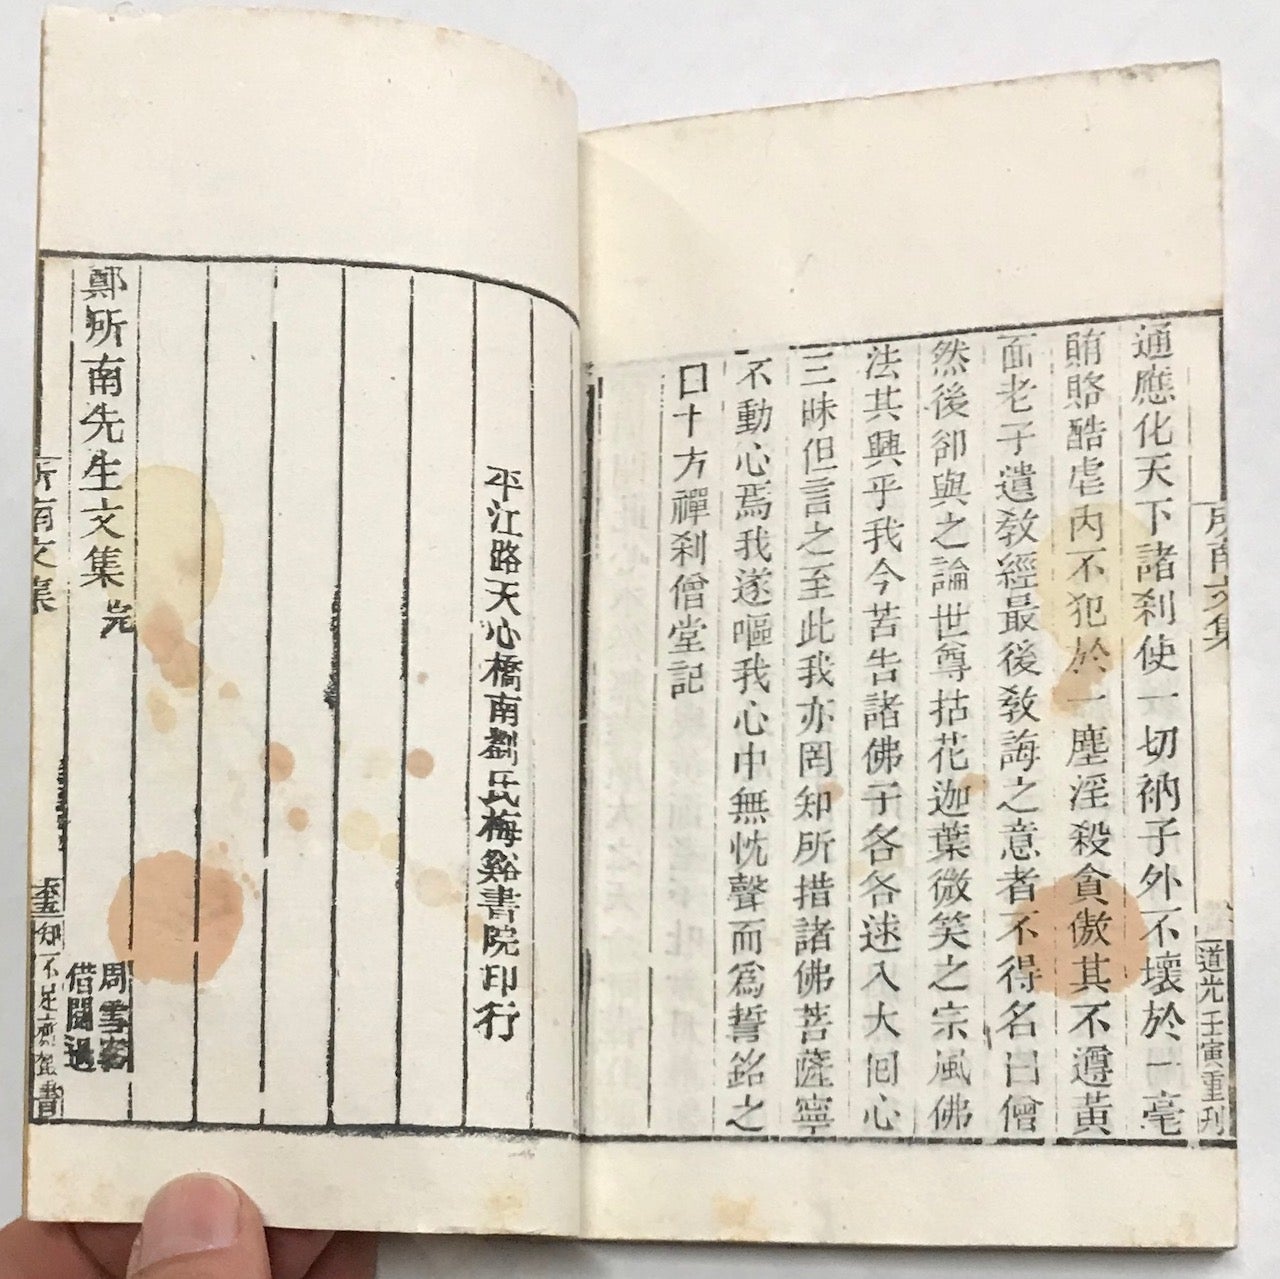 所南文集
道光壬寅重刊
通應化天下諸刹使一切衲子外不壞於一毫
賄賂酷虐內不犯於一塵淫殺貪傲其不遵黃
面老子遺敎經最後敎誨之意者不得名曰僧
然後卻與之論世尊拈花迦葉微笑之宗風佛
法其興乎我今苦告諸佛子各各速入大回心
三昧但言之至此我亦罔知所措諸佛菩薩寧
不動心焉我遂嘔我心中無忱聲而爲誓銘之
曰十方禪刹僧堂記
平江路天心橋南劉氏梅谿書院印行
鄭所南先生文集 完
周雪客
借閱過
所南文集
知不足齋叢書